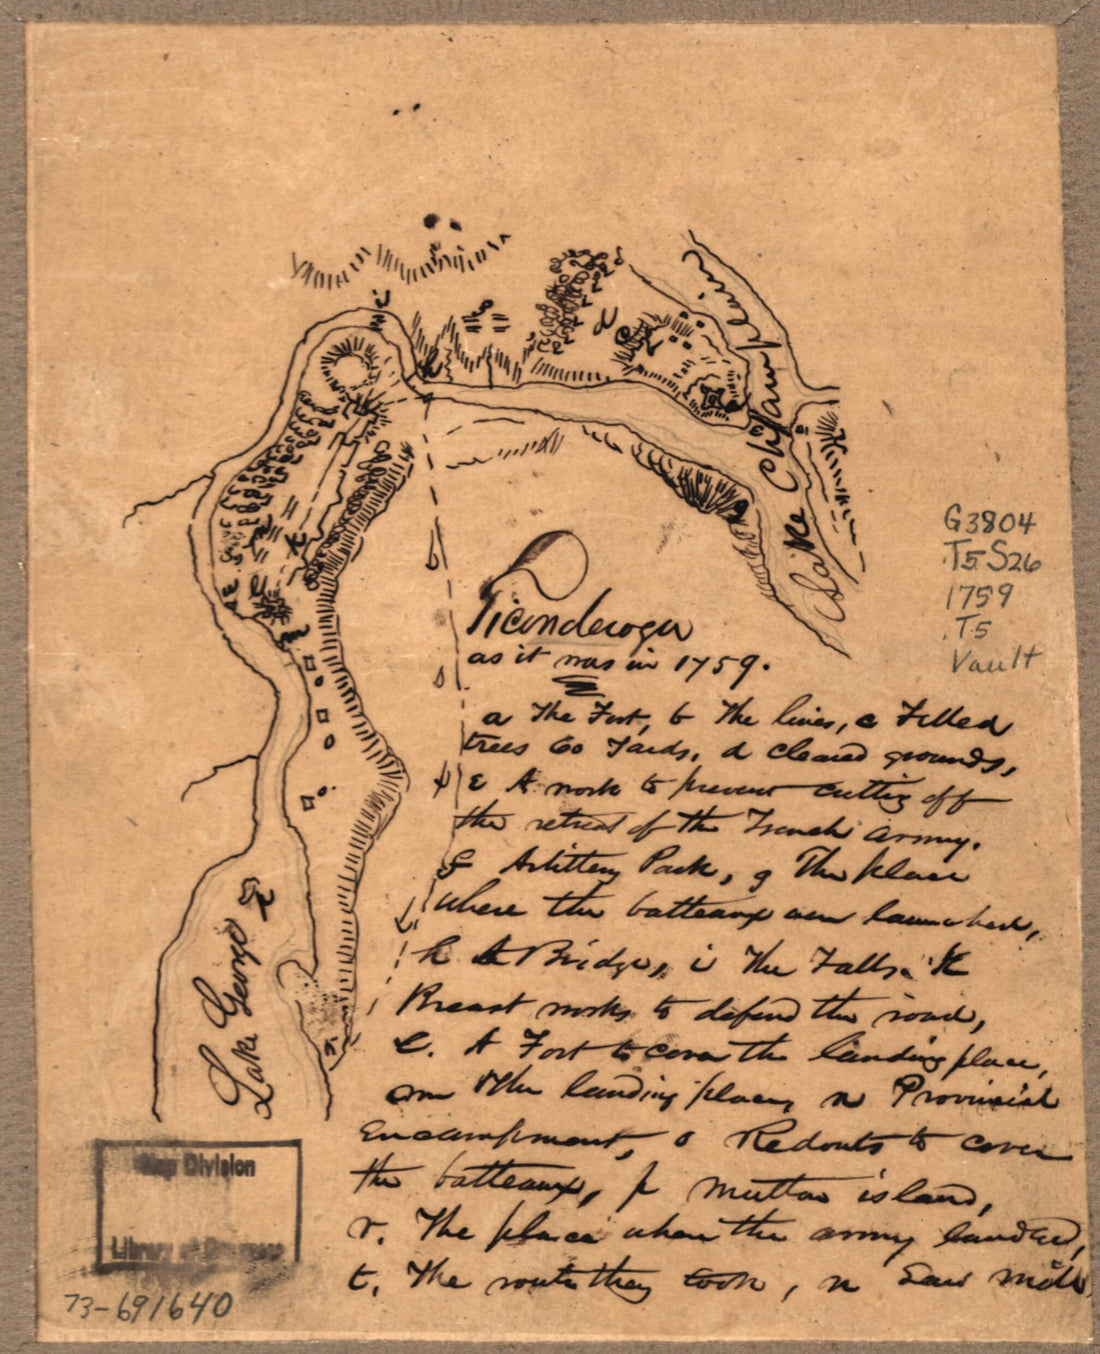 Lake Champlain
G3804
.T5S26
1759
.T5
Vault
Ticonderoga
as it was in 1759.
a The Fort, b The lines, c Felled
trees 60 Yards, d cleared grounds,
E A work to prevent cutting off
the retreat of the French army.
f Artillery Park, g The place
where the batteaux were launched,
h A Bridge, i The Falls. K
Breast works to defend the road,
l. A Fort to cover the landing place,
m The landing place, n Provincial
Encampment, o Redouts to cover
the batteaux, p Mutton island,
r. The place where the army landed,
t. The route they took, n Saw mill
Lake George
Map Division
Library of Congress
73-691640